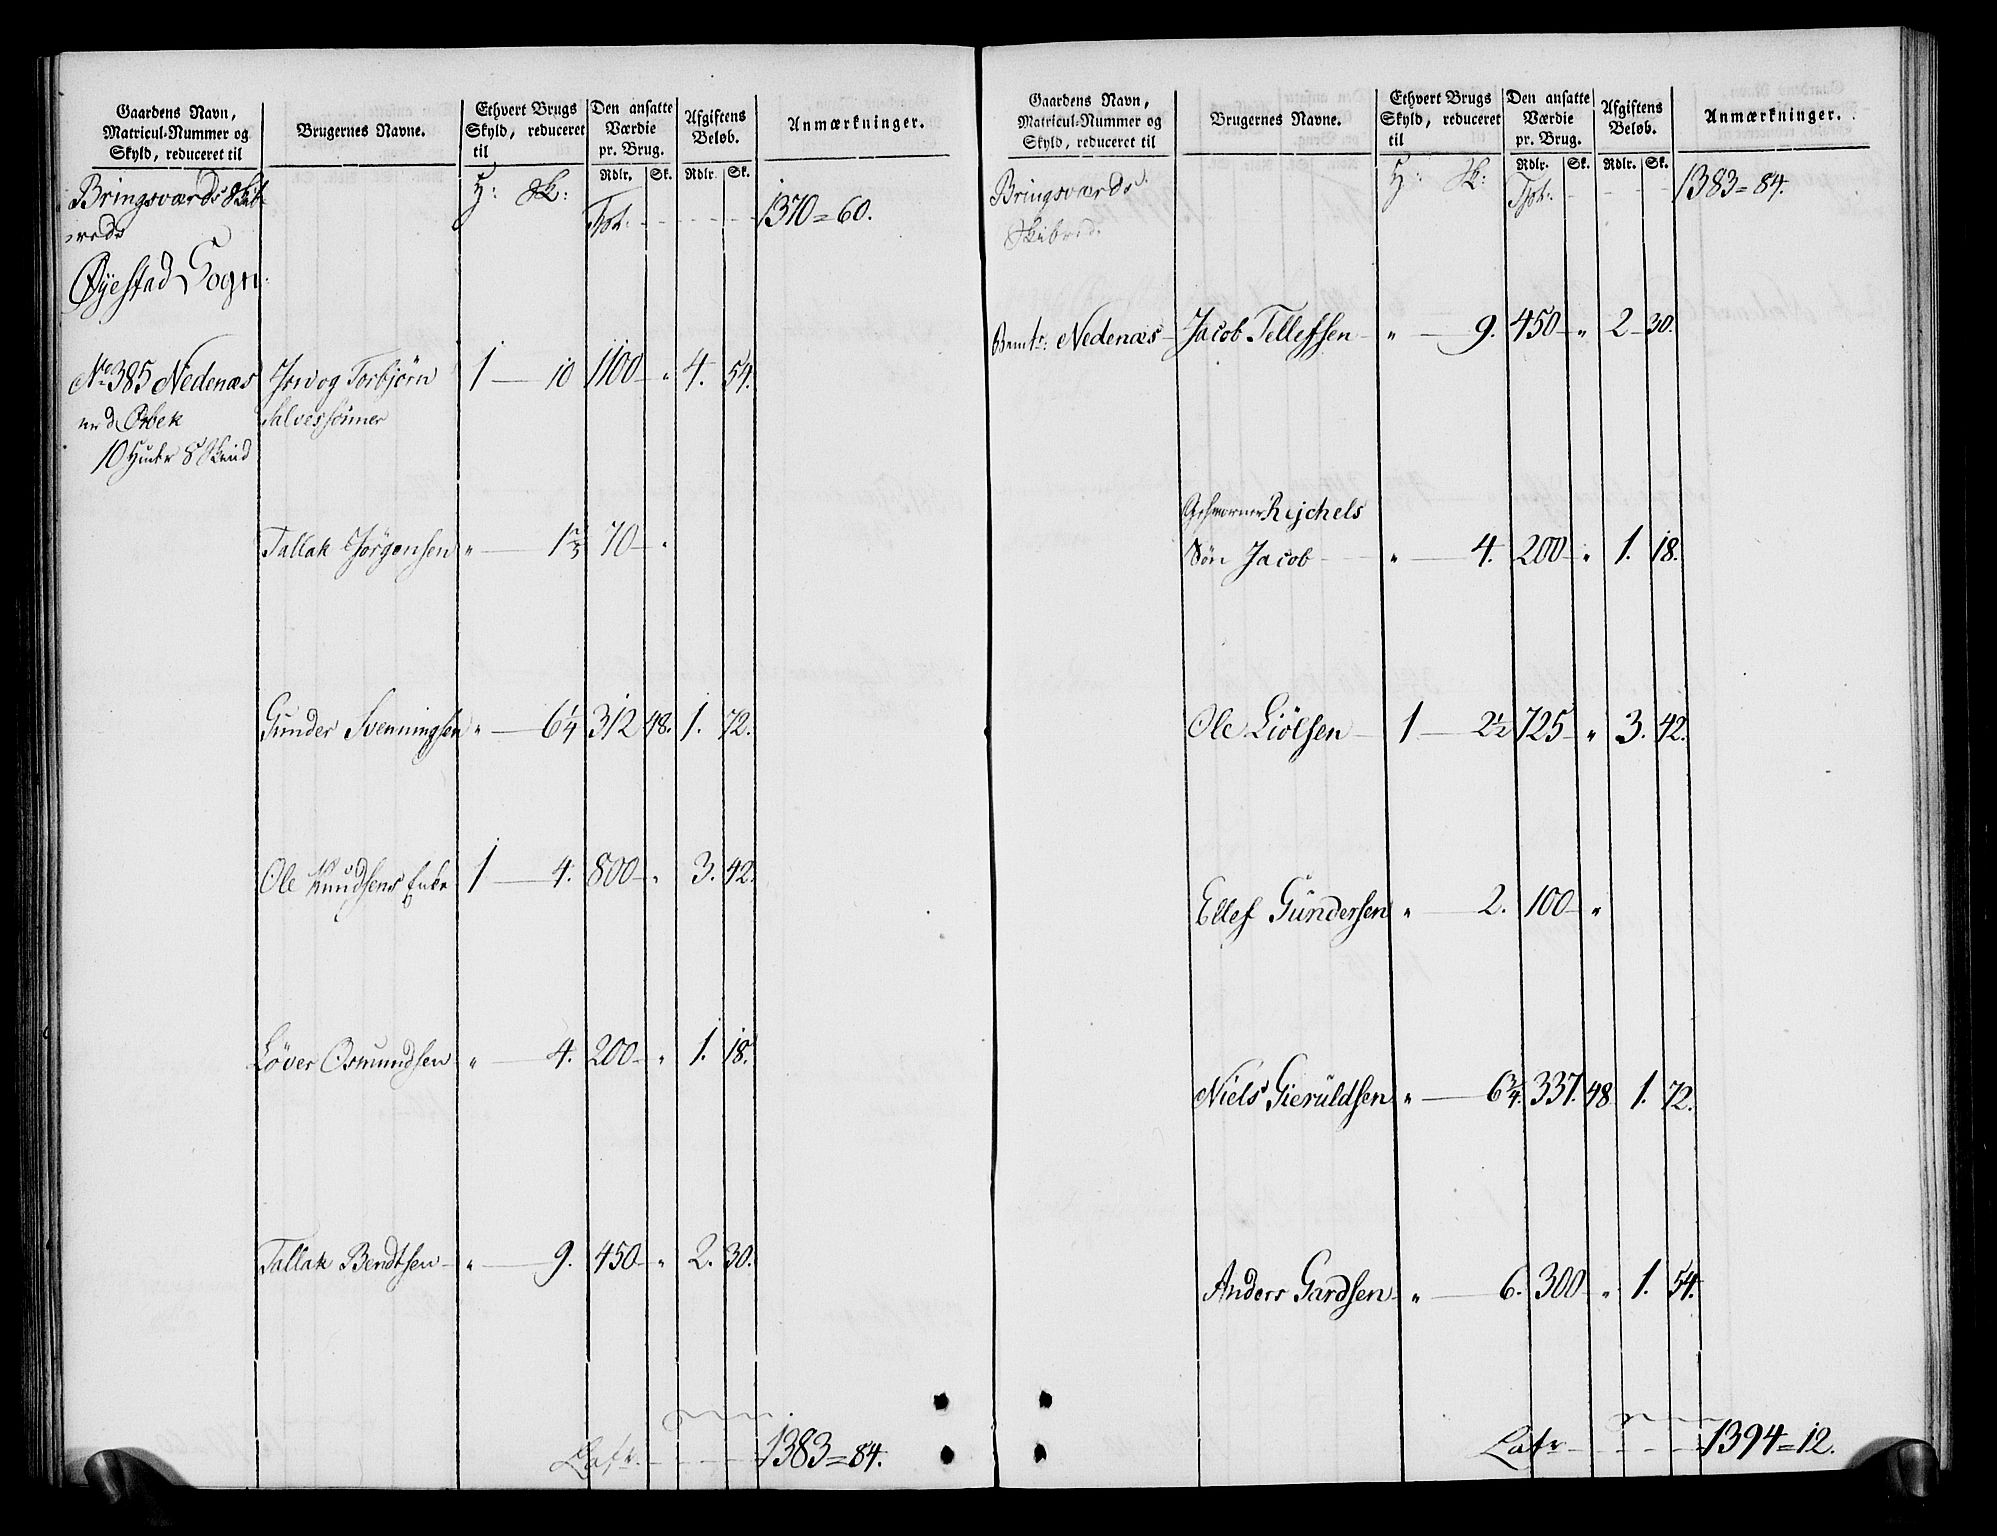 Gaardens Navn, Matricul-Nummer og Skyld, reduceret til
Brugernes Navne.
Ethvert Brugs Skyld, reduceret til
Den ansatte Værdie pr. Brug.
Afgiftens Beløb.
Anmærkninger.
Rdlr. Sk. Rdlr. Sk.
Bringsværds Skib-
rede
H: Sk:
Tpt: 1370=60.
Øyestad Sogn.
No 385 Nedenæs og Torbjørn 1 — 10 1100 — " 4. 54.
Salvessønner
10 Huder 8 Skind
Tallak Jørgensen " — 1 2/3 70 — "
Gunder Svenningsen " — 6 1/4 312 48. 1. 72.
Ole Knudsens Enke 1 — 4. 800 — " 3. 42.
Løver Osmundsen " — 4. 200 — " 1. 18.
Tallak Bendtsen — " — 9. 450 — " 2. 30.
Latr. 1383=84.
Gaardens Navn, Matricul-Nummer og Skyld, reduceret til
Brugernes Navne.
Ethvert Brugs Skyld, reduceret til
Den ansatte Værdie pr. Brug.
Afgiftens Beløb.
Anmærkninger.
Rdlr. Sk. Rdlr. Sk.
Bringsværds
Skibred.
H: Sk:
Tpt: 1383=84.
Nedenæs — Jacob Tellefsen — " — 9. 450 — " 2 — 30.
Rejchels
Søn Jacob — " — 4. 200 — " 1. 18.
Ole Liölsen — 1 — 2 1/2 725 — " 3. 42.
Ellef Gündersen " — 2. 100 — "
Niels Gierüldsen " — 6 3/4 337. 48 1. 72.
Anders Gardsen — " — 6. 300 — " 1. 54.
Latr 1394=12.